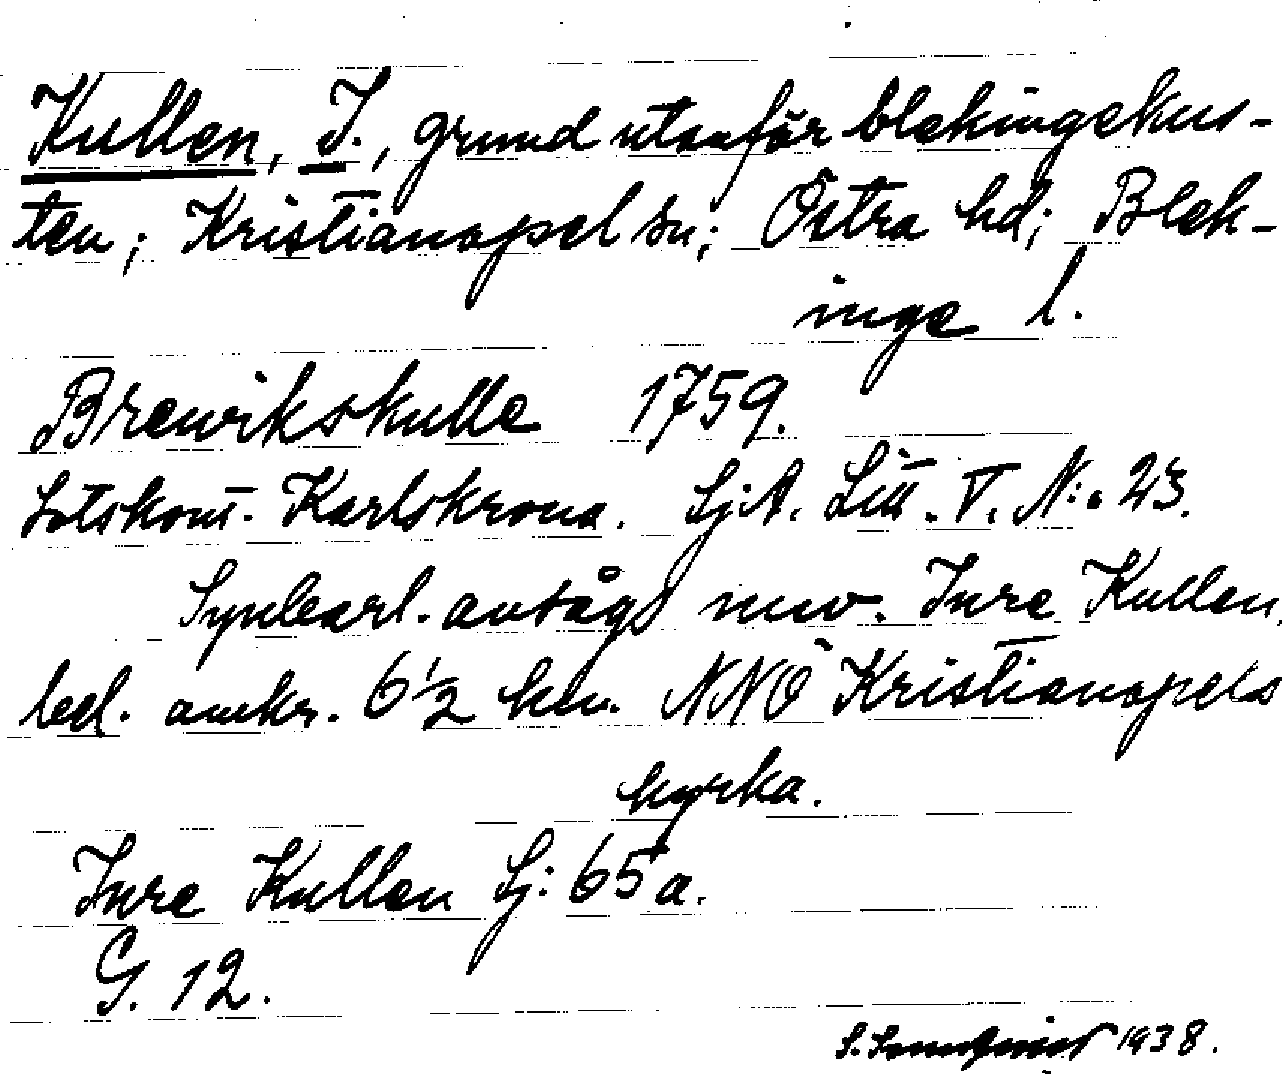 Kullen, I., grund utanför blekingekus-
ten; Kristianopel sn; Östra hd; Blek-
inge l.
Brewikskulle 1759.
Lotskont. Karlskrona. SjA. Litt. V. N:o 23.
Synbarl. avsågs nuv. Inre Kullen,
bel. omkr. 6 1/2 km. NNÖ Kristianopels
kyrka.
Inre Kullen Sj: 65 a.
G. 12.
S. 1938.